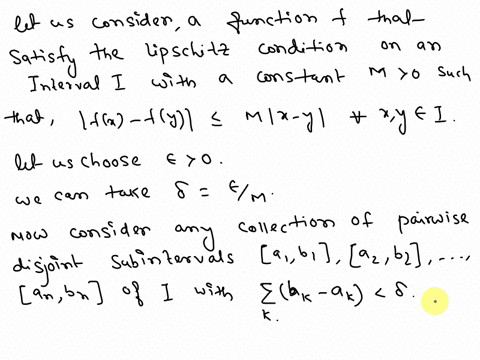 let us consider, a function f that
satisfy the Lipschitz condition on an
Interval I with a constant M>0 such
that, |f(x) - f(y)| ≤ M|x-y| ∀ x,y ∈ I.
let us choose ε>0.
we can take δ = ε/M.
Now consider any collection of pairwise
disjoint subintervals [a₁,b₁], [a₂,b₂], ...,
[aₙ,bₙ] of I with ∑ₖ(bₖ-aₖ) < δ.